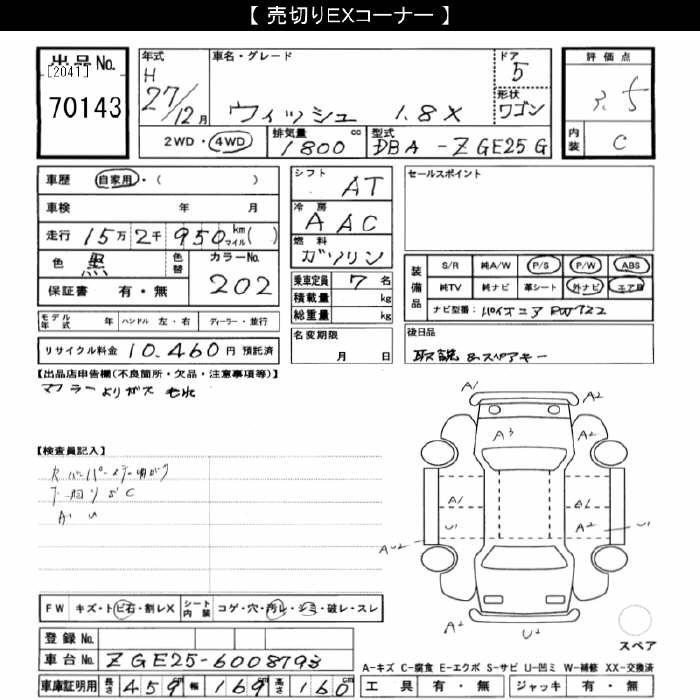 【 売切りEXコーナー 】
出品No.
[2041]
70143
年式
H
27/12月
車名・グレード
ウィッシュ 1.8X
ドア
5
形状
ワゴン
評価点
3.5
内装
C
2WD・4WD
排気量
1800 cc
型式
DBA-ZGE25G
車歴 自家用・( )
車検 年 月
走行 15万2千950km マイル( )
色 黒 色替 カラーNo. 202
保証書 有・無
モデル年式 年 ハンドル 左・右 ディーラー・並行
リサイクル料金 10,460円 預託済
シフト
AT
冷房
AAC
燃料
ガソリン
乗車定員 7名
積載量 kg
総重量 kg
名変期限
月 日
セールスポイント
装備品
S/R 純A/W P/S P/W ABS
純TV 純ナビ 革シート 外ナビ エア用
ナビ型番: パイオニア
後日品
取説 &スペアキー
【出品店申告欄(不良箇所・欠品・注意事項等)】
マフラーよりガスもれ
【検査員記入】
下回りSC
AU
A1
A2
A3
A2
A1
A1
U1
A2
U1
AU2
A2
U2
スペア
FW キズ・トビ石・割レX シート内装 コゲ・穴・汚レ・シミ・破レ・スレ
登録No.
車台No. ZGE25-6008793
車庫証明用 長さ 459cm 幅 169cm 高さ 160cm
A-キズ C-腐食 E-エクボ S-サビ U-凹ミ W-補修 XX-交換済
工具 有・無 ジャッキ 有・無